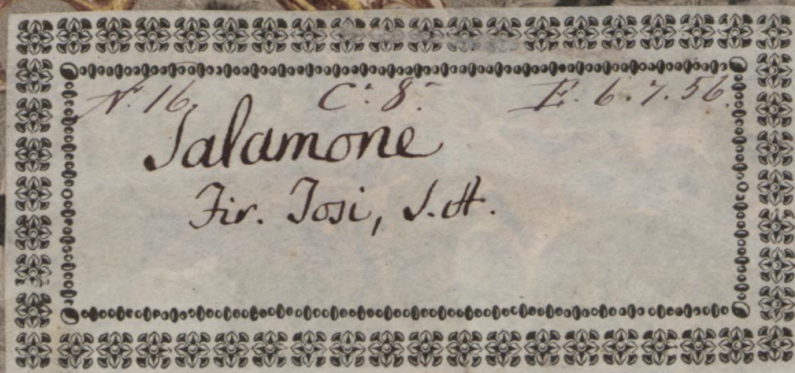 N. 16. C: 8: E. 6. 7. 56.
Salamone
Fir. Tosi, S. A.